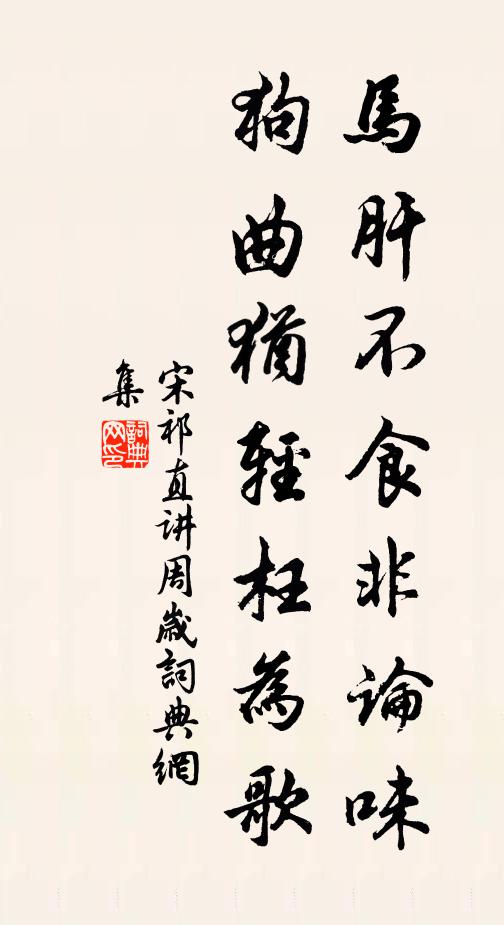 馬肝不食非論味
狗曲猶輕枉為歌
宋祁直讲周歲詞典網
集
詞典网印